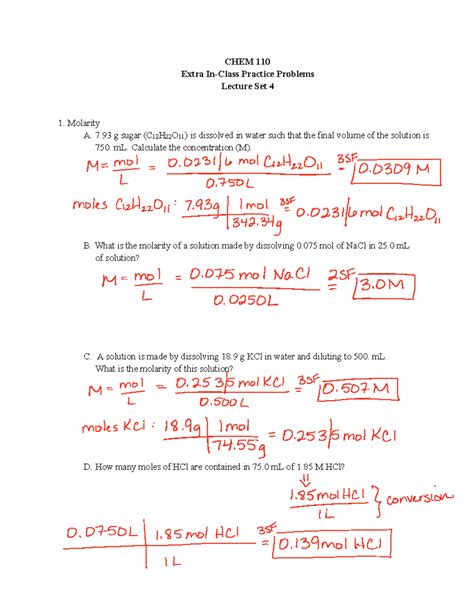 CHEM 110
Extra In-Class Practice Problems
Lecture Set 4
1. Molarity
A. 7.93 g sugar (C₁₂H₂₂O₁₁) is dissolved in water such that the final volume of the solution is
750. mL. Calculate the concentration (M).
M = mol / L = 0.0231|6 mol C₁₂H₂₂O₁₁ / 0.750L 3SF = 0.0309 M
moles C₁₂H₂₂O₁₁ : 7.93g | 1mol / 342.34g 3SF = 0.0231|6 mol C₁₂H₂₂O₁₁
B. What is the molarity of a solution made by dissolving 0.075 mol of NaCl in 25.0 mL
of solution?
M = mol / L = 0.075 mol NaCl / 0.0250L 2SF = 3.0M
C. A solution is made by dissolving 18.9 g KCl in water and diluting to 500. mL.
What is the molarity of this solution?
M = mol / L = 0.253|5 mol KCl / 0.500L 3SF = 0.507 M
moles KCl : 18.9g | 1mol / 74.55g = 0.253|5 mol KCl
D. How many moles of HCl are contained in 75.0 mL of 1.85 M HCl?
⇓
1.85 mol HCl / 1L } conversion
0.0750L | 1.85 mol HCl / 1L 3SF = 0.139 mol HCl